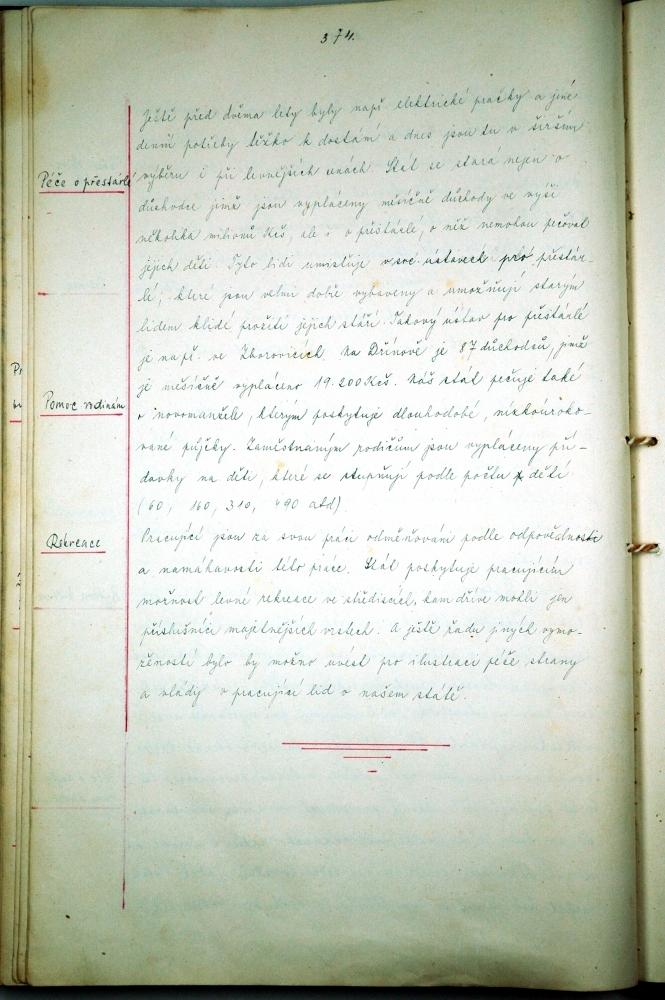 374.
Ještě před dvěma lety byly např. elektrické pračky a jiné
denní potřeby těžko k dostání a dnes jsou tu v širším
výběru i při levnějších cenách. Stát se stará nejen o
Péče o přestárlé
důchodce jimž jsou vypláceny měsíčně důchody ve výši
několika milionů Kčs, ale i o přestárlé, o něž nemohou pečovat
jejich děti. Tyto lidi umisťuje v soc. ústavech pro přestár-
lé, které jsou velmi dobře vybaveny a umožňují starým
lidem klidé prožití jejich stáří. Takový ústav pro přestárlé
je např. ve Zborovicích. Na Dřínově je 87 důchodců, jimž
je měsíčně vypláceno 19.200 Kčs. Náš stát pečuje také
Pomoc rodinám
o novomanžele, kterým poskytuje dlouhodobé, nízkoúroko-
vané půjčky. Zaměstnaným rodičům jsou vypláceny pří-
davky na děti, které se stupňují podle počtu dětí
(60, 160, 310, 490 atd).
Rekreace
Pracující jsou za svou práci odměňováni podle odpovědnosti
a namáhavosti této práce. Stát poskytuje pracujícím
možnost levné rekreace ve střediscích, kam dříve mohli jen
příslušníci majetnějších vrstech. A ještě řadu jiných vymo-
žeností bylo by možno uvést pro ilustraci péče strany
a vlády o pracující lid v našem státě.